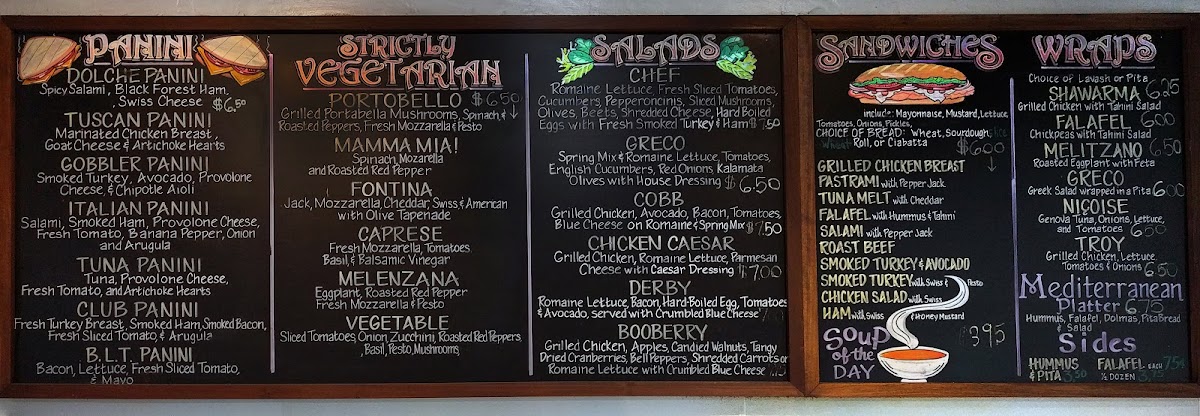 PANINI
DOLCHE PANINI
Spicy Salami, Black Forest Ham,
, Swiss Cheese $6.50
TUSCAN PANINI
Marinated Chicken Breast,
Goat Cheese & Artichoke Hearts
GOBBLER PANINI
Smoked Turkey, Avocado, Provolone
Cheese & Chipotle Aioli
ITALIAN PANINI
Salami, Smoked Ham, Provolone Cheese,
Fresh Tomato, Banana Pepper, Onion
and Arugula
TUNA PANINI
Tuna, Provolone Cheese,
Fresh Tomato, and Artichoke Hearts
CLUB PANINI
Fresh Turkey Breast, Smoked Ham, Smoked Bacon,
Fresh Sliced Tomato & Arugula
B.L.T. PANINI
Bacon, Lettuce, Fresh Sliced Tomato,
& Mayo
STRICTLY
VEGETARIAN
PORTOBELLO $6.50
Grilled Portabella Mushrooms, Spinach, &
Roasted Peppers, Fresh Mozzarella & Pesto
MAMMA MIA!
Spinach, Mozarella
and Roasted Red Pepper
FONTINA
Jack, Mozzarella, Cheddar, Swiss, & American
with Olive Tapenade
CAPRESE
Fresh Mozzarella, Tomatoes
Basil, & Balsamic Vinegar
MELENZANA
Eggplant, Roasted Red Pepper
Fresh Mozzarella & Pesto
VEGETABLE
Sliced Tomatoes, Onion, Zucchini, Roasted Red Peppers,
, Basil, Pesto, Mushrooms
SALADS
CHEF
Romaine Lettuce, Fresh Sliced Tomatoes,
Cucumbers, Pepperoncinis, Sliced Mushrooms,
Olives, Beets, Shredded Cheese, Hard Boiled
Eggs with Fresh Smoked Turkey & Ham $7.50
GRECO
Spring Mix & Romaine Lettuce, Tomatoes,
English Cucumbers, Red Onions Kalamata
Olives with House Dressing $6.50
COBB
Grilled Chicken, Avocado, Bacon, Tomatoes,
Blue Cheese on Romaine & Spring Mix $7.50
CHICKEN CAESAR
Grilled Chicken, Romaine Lettuce, Parmesan
Cheese with Caesar Dressing $7.00
DERBY
Romaine Lettuce, Bacon, Hard-Boiled Egg, Tomatoes
& Avocado, served with Crumbled Blue Cheese
BOOBERRY
Grilled Chicken, Apples, Candied Walnuts, Tangy
Dried Cranberries, Bell Peppers, Shredded Carrots on
Romaine Lettuce with Crumbled Blue Cheese
SANDWICHES
include: Mayonnaise, Mustard, Lettuce,
Tomatoes, Onions, Pickles,
CHOICE OF BREAD: Wheat, Sourdough,
Roll, or Ciabatta
$6.00
GRILLED CHICKEN BREAST
PASTRAMI with Pepper Jack
TUNA MELT with Cheddar
FALAFEL with Hummus & Tahini
SALAMI with Pepper Jack
ROAST BEEF
SMOKED TURKEY & AVOCADO
SMOKED TURKEY with Swiss & Pesto
CHICKEN SALAD with Swiss
HAM with Swiss & Honey Mustard
SOUP
of the
DAY
$3.95
WRAPS
Choice of Lavash or Pita
SHAWARMA 6.25
Grilled Chicken with Tahini Salad
FALAFEL 6.00
Chickpeas with Tahini Salad
MELITZANO 6.50
Roasted Eggplant with Feta
GRECO
Greek Salad wrapped in a Pita 6.00
NIÇOISE
Genova Tuna, Onions, Lettuce,
and Tomatoes 6.50
TROY
Grilled Chicken, Lettuce,
Tomatoes & Onions 6.50
Mediterranean
Platter 6.75
Hummus, Falafel, Dolmas, Pita Bread
& Salad
Sides
HUMMUS
& PITA 3.50
FALAFEL EACH 75¢
½ DOZEN 3.75